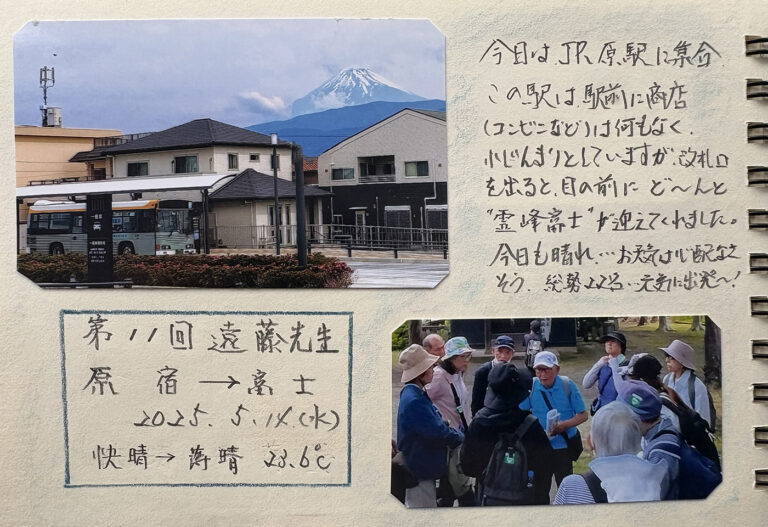 今日は JR 原駅に集合
この駅は、駅前に商店
(コンビニなど)は何もなく、
小じんまりとしていますが、改札口
を出ると、目の前に ど〜んと
"霊峰富士"が迎えてくれました。
今日も晴れ…お天気は心配なさ
そう、総勢22名…元気に出発〜!
第11回 遠藤先生
原 宿→富士
2025. 5. 14.(水)
快晴→薄晴 23.6℃